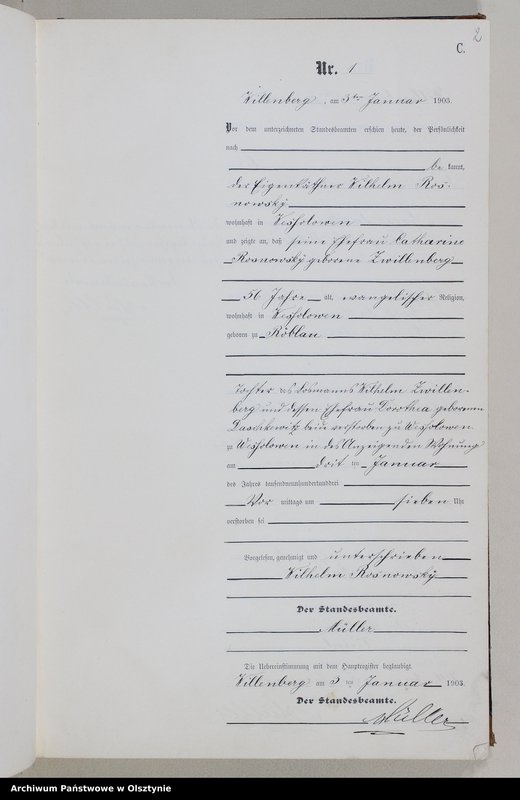 2
C.
Nr. 1
Willenberg, am 3ten Januar 1903.
Vor dem unterzeichneten Standesbeamten erschien heute, der Persönlichkeit
nach
be kannt,
der Eigenkäthner Wilhelm Ros-
nowsky
wohnhaft in Wessolowen
und zeigte an, daß seine Ehefrau Catharine
Rosnowsky geborene Zwillenberg
56 Jahre alt, evangelischer Religion,
wohnhaft in Wessolowen
geboren zu Röblau
Tochter des Losmanns Wilhelm Zwillen-
berg und dessen Ehefrau Dorothea geborenen
beide verstorben zu Wessolowen
zu Wessolowen in des Anzeigenden Wohnung
am ten Januar
des Jahres tausendneunhundertunddrei
Vor mittags um sieben Uhr
verstorben sei
Vorgelesen, genehmigt und unterschrieben
Wilhelm Rosnowsky
Der Standesbeamte.
Müller
Die Uebereinstimmung mit dem Hauptregister beglaubigt.
Willenberg am 3 ten Januar 1903.
Der Standesbeamte.
Müller
Archiwum Państwowe w Olsztynie